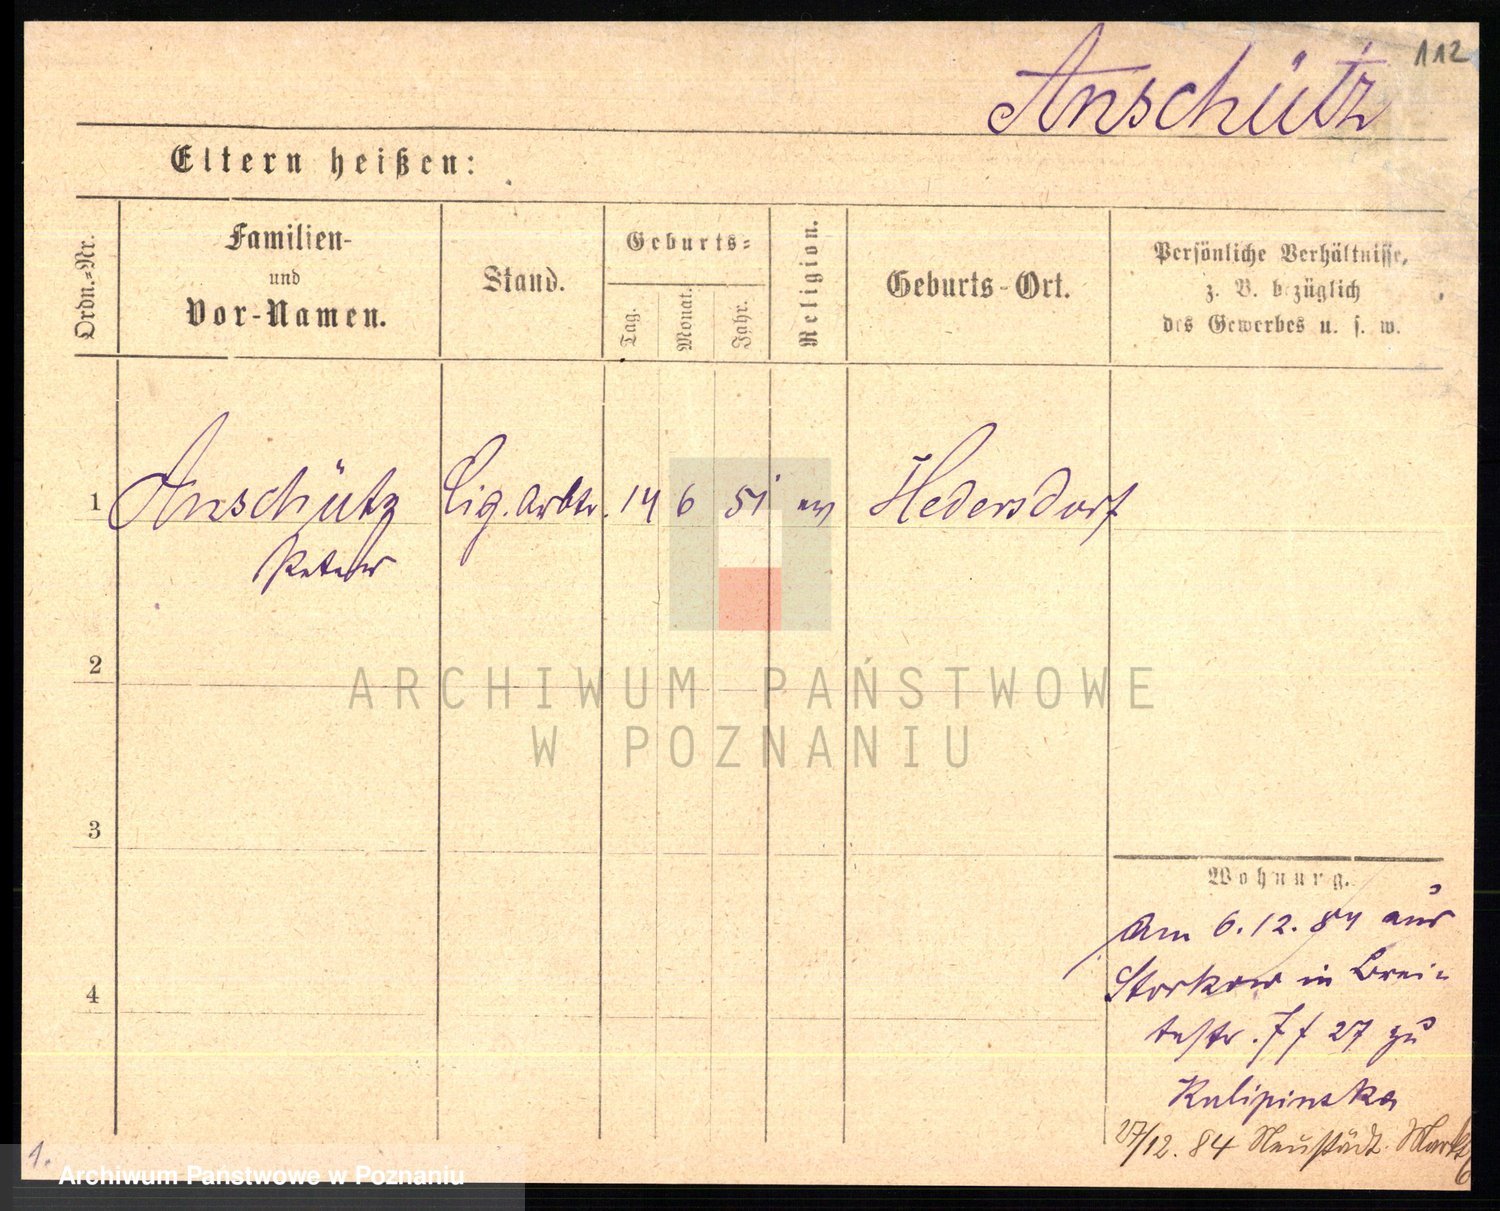 112
Anschütz
Eltern heißen:
Ordn.=Nr.
Familien-
und
Vor-Namen.
Stand.
Geburts=
Tag.
Monat.
Jahr.
Religion.
Geburts-Ort.
Persönliche Verhältnisse,
z. B. bezüglich
des Gewerbes u. s. w.
1 Anschütz Cig. Arbtr. 14 6 51 ev Hedersdorf
Peter
2
ARCHIWUM PAŃSTWOWE
W POZNANIU
3
4
Wohnung.
Am 6.12.84 aus
Storkow in Brei-
testr. 27 zu
Kulipinska
27/12. 84 Neustädt. Markt
6
1.
Archiwum Państwowe w Poznaniu